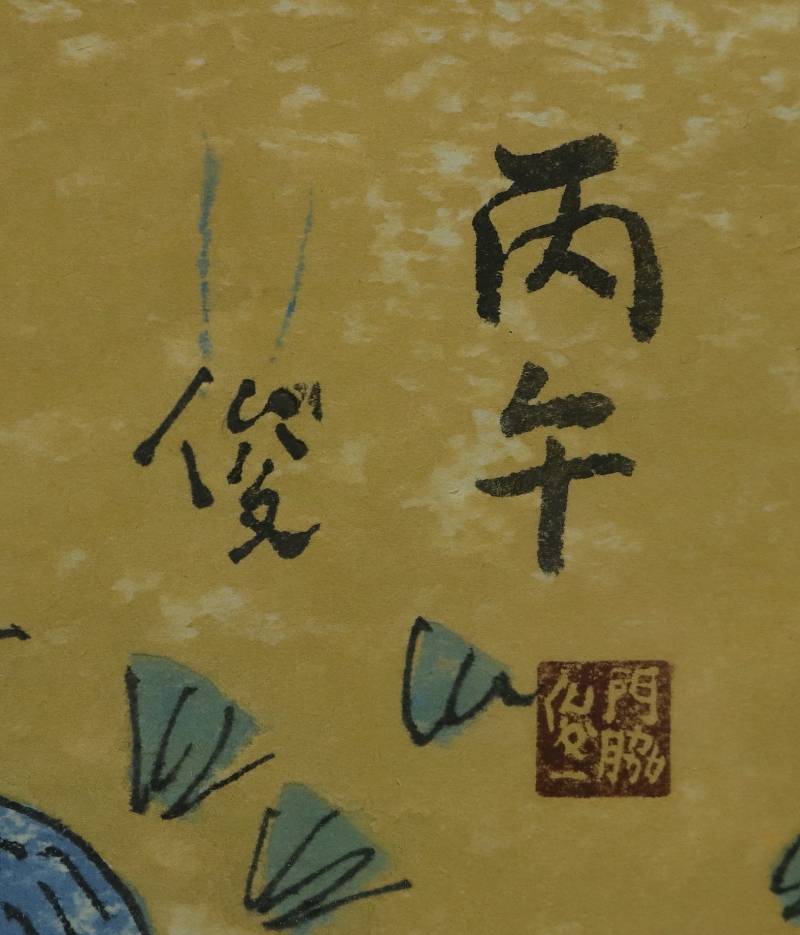 丙午
俊
門脇
俊一